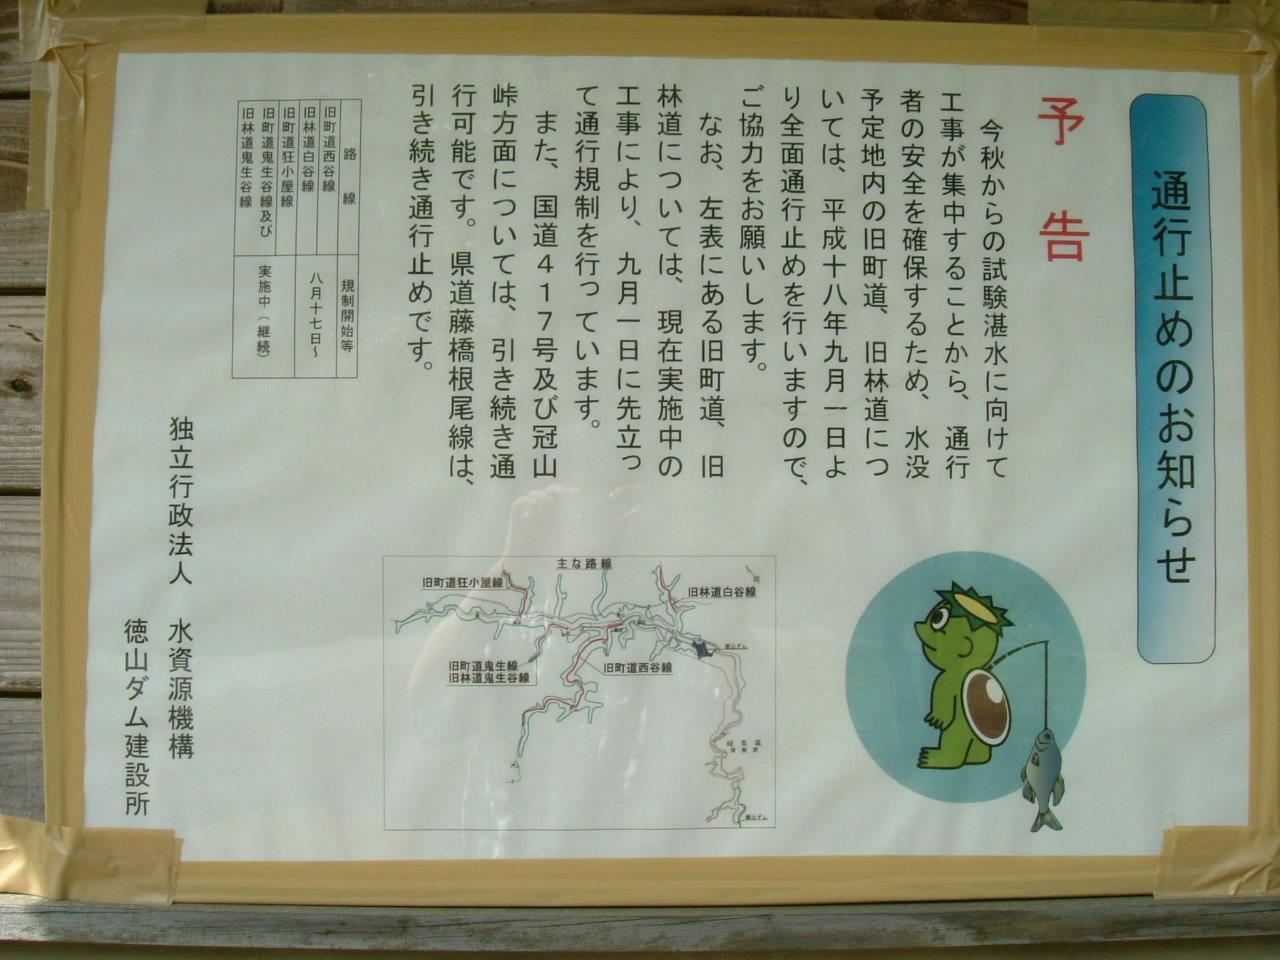 通行止めのお知らせ
予告
今秋からの試験湛水に向けて
工事が集中することから、通行
者の安全を確保するため、水没
予定地内の旧町道、旧林道につ
いては、平成十八年九月一日よ
り全面通行止めを行いますので、
ご協力をお願いします。
なお、左表にある旧町道、旧
林道については、現在実施中の
工事により、九月一日に先立っ
て通行規制を行っています。
また、国道417号及び冠山
峠方面については、引き続き通
行可能です。県道藤橋根尾線は、
引き続き通行止めです。
路線
規制開始等
旧町道西谷線
旧林道白谷線
八月十七日~
旧町道狂小屋線
旧町道鬼生谷線及び
旧林道鬼生谷線
実施中(継続)
主な路線
旧町道狂小屋線
旧林道白谷線
旧町道鬼生線
旧林道鬼生谷線
旧町道西谷線
独立行政法人 水資源機構
徳山ダム建設所